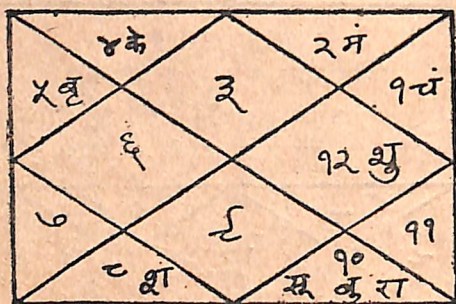 ४ के २ मं
५ बृ ३ १ चं
६ १२ शु
७ ९ ११
८ श १०
सू बु रा